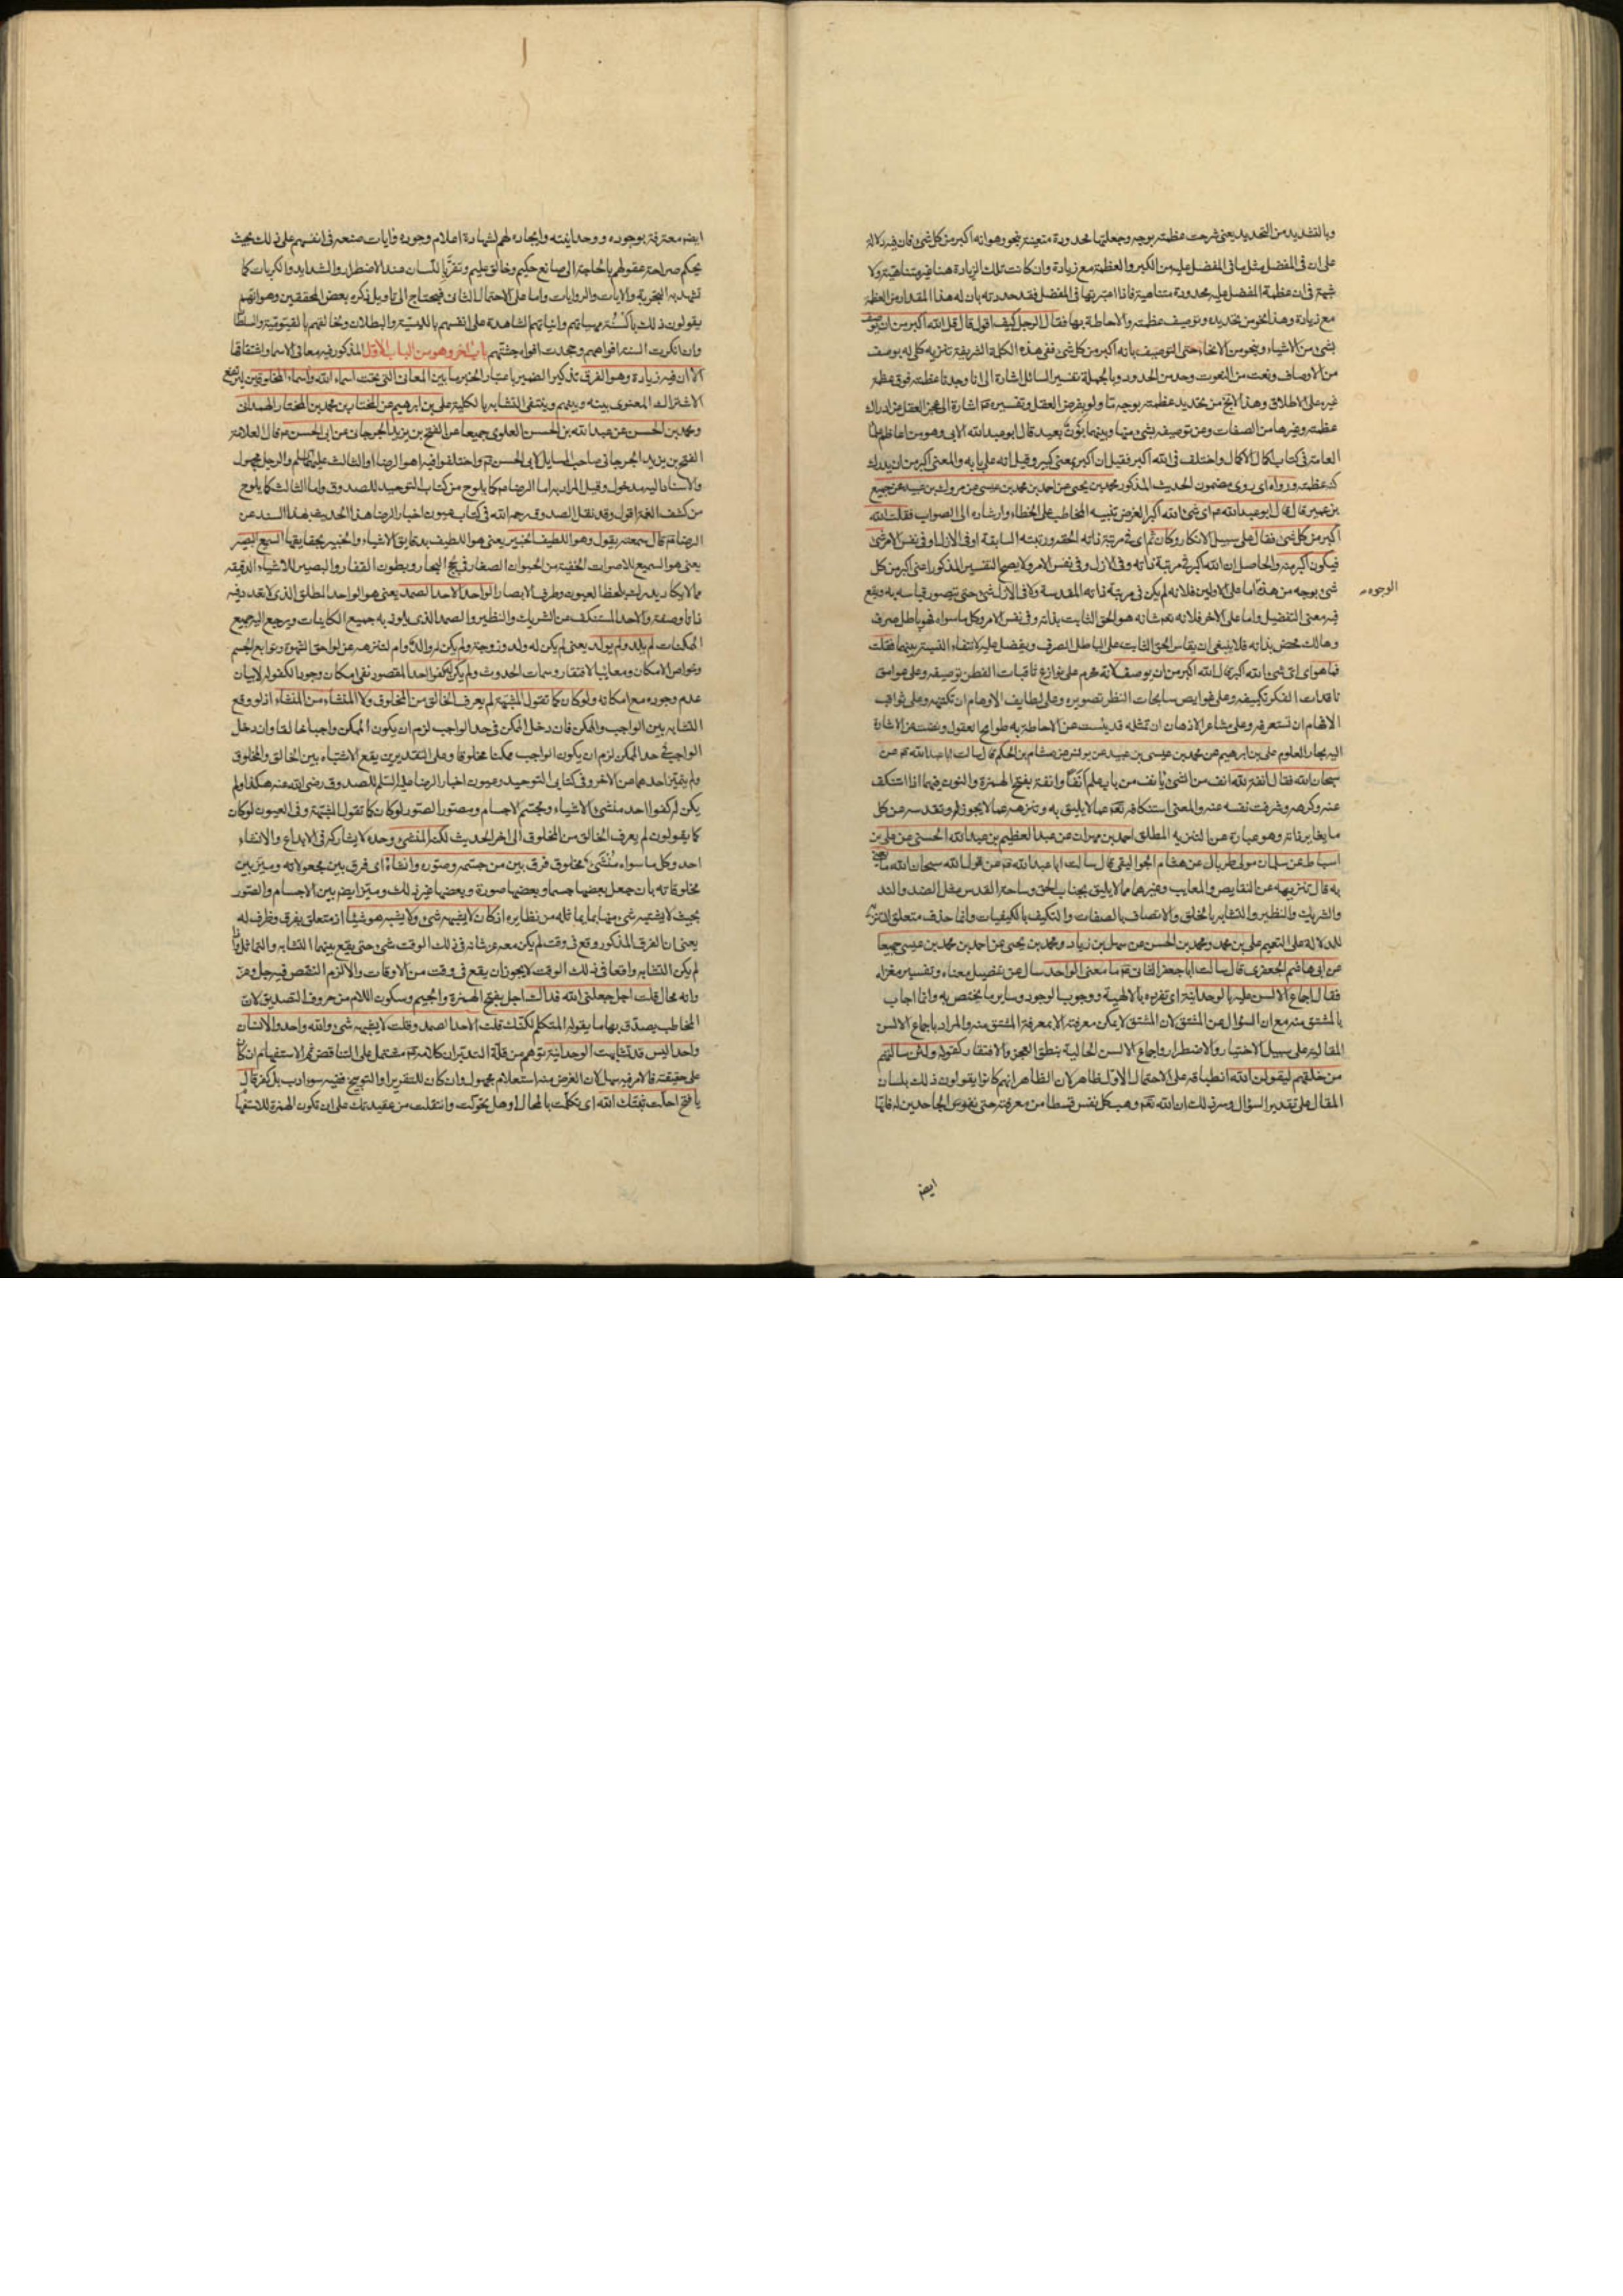 وبالتشديد من التحديد يعنى شرحت عظمته بوجه وجعلتها محدودة متعينة بنحو وهو انه اكبر من كل شئ فان فيه دلالة
على ان فى المفضل مثل ما فى المفضل عليه من الكبر والعظمة مع زيادة وان كانت تلك الزيادة هنا غير متناهية ولا
شبهة فى ان عظمة المفضل عليه محدودة متناهية فاذا اعتبرتها فى المفضل فقد حددته بان له هذا المقدار من العظمة
مع زيادة وهذا نحو من تحديده وتوصيف عظمته والاحاطة بها فقال الرجل كيف اقول قال قل الله اكبر من ان يوصف
بشئ من الاشياء وبنحو من الانحاء حتى التوصيف بانه اكبر من كل شئ ففى هذه الكلمة الشريفة تنزيه كلى له بوصف
من الاوصاف ونعت من النعوت وحد من الحدود وبالجملة تفسير السائل اشارة الى انا وجدنا عظمته فوق عظمة
غيره على الاطلاق وهذا لا يخ من تحديد عظمته بوجه ما ولو بفرض العقل وتفسيره ع اشارة الى عجز العقل عن ادراك
عظمته وغيرها من الصفات وعن توصيفه بشئ منها وبينهما بون بعيد قال ابو عبد الله الابى وهو من اعاظم علماء
العامة فى كتاب اكمال الاكمال واختلف فى الله اكبر فقيل ان اكبر بمعنى كبير وقيل انه على بابه والمعنى اكبر من ان يدرك
كنه عظمته ورواه اى روى مضمون الحديث المذكور محمد بن يحيى عن احمد بن محمد بن عيسى عن مروك بن عبيد عن جميع
بن عمير قال قال ابو عبد الله ع اى شئ الله اكبر الغرض تنبيه المخاطب على الخطاء وارشاده الى الصواب فقلت الله
اكبر من كل شئ فقال على سبيل الانكار وكان ثم اى فى مرتبة ذاته الحقة ورتبته السابقة او فى الازل او فى نفس الامر شئ
فيكون اكبر منه والحاصل ان الله اكبر فى مرتبة ذاته وفى الازل وفى نفس الامر ولا يصح التفسير المذكور اعنى اكبر من كل
شئ بوجه من هذه اما على الاولين فلانه لم يكن فى مرتبة ذاته المقدسة ولا فى الازل شئ حتى يتصور قياسه به ويقع
الوجوه
فيه معنى التفضيل واما على الاخر فلانه نعم شانه هو الحق الثابت بذاته وفى نفس الامر وكل ما سواه فهو باطل صرف
وهالك محض بذاته فلا ينبغى ان يقاس الحق الثابت على الباطل الصرف ويفضل عليه لانتفاء النسبة بينهما فقلت
فما هو اى اى شئ الله اكبر قال الله اكبر من ان يوصف لانه محرم على نوازع ثاقبات الفطن توصيفه وعلى عوامق
ناقدات الفكر تكييفه وعلى غوايص سابحات النظر تصويره وعلى لطايف الاوهام ان تكتنهه وعلى ثواقب
الافهام ان تستعرفه وعلى مشاعر الاذهان ان تمثله قد يئست عن الاحاطة به طوامح العقول وغضت عن الاشارة
اليه بحار العلوم على بن ابرهيم عن محمد بن عيسى بن عبيد عن يونس عن هشام بن الحكم قال سالت ابا عبد الله ع عن
سبحان الله فقال انفة لله انف من الشئ يانف من باب علم انفا وانفة بفتح الهمزة والنون فيهما اذا استنكف
عنه وكرهه وشرفت نفسه عنه والمعنى استنكافه تعم عما لا يليق به وتنزهه عما لا يجوز له وتقدسه عن كل
ما يغاير ذاته وهو عبارة عن التنزيه المطلق احمد بن مهران عن عبد العظيم بن عبد الله الحسنى عن على بن
اسباط عن سليمان مولى طربال عن هشام الجواليقى قال سالت ابا عبد الله ع عن قول الله سبحان الله ما يعنى
به قال تنزيهه عن النقايص والمعايب وغيرهما مما لا يليق بجناب الحق وساحة القدس مثل الضد والند
والشريك والنظير والتشابه بالخلق والاتصاف بالصفات والتكيف بالكيفيات وانما حذف متعلق التنزيه
للدلالة على التعميم على بن محمد ومحمد بن الحسن عن سهل بن زياد ومحمد بن يحيى عن احمد بن محمد بن عيسى جميعا
عن ابى هاشم الجعفرى قال سالت ابا جعفر الثانى ع ما معنى الواحد سال عن تفصيل معناه وتفسير مغزاه
فقال اجماع الالسن عليه بالوحدانية اى تفرده بالالهية ووجوب الوجود وساير ما يختص به وانما اجاب
بالمشتق منه مع ان السؤال عن المشتق لان المشتق لا يمكن معرفته الا بمعرفة المشتق منه والمراد باجماع الالسن
المقالية على سبيل الاختيار والاضطرار واجماع الالسن الحالية بنطق العجز والافتقار كقوله ولئن سالتهم
من خلقهم ليقولن الله انطباقه على الاحتمال الاول ظاهر لان الظاهر انهم كانوا يقولون ذلك بلسان
المقال على تقدير السؤال وسر ذلك ان الله تعم وهب كل نفس قسطا من معرفته حتى نفوس الجاحدين له فانها
ايضا
ايضا معترفة بوجوده ووحدانيته وايجاده لهم لشهادة اعلام وجوده وايات صنعه فى انفسهم على ذلك بحيث
يحكم صراحة عقولهم بالحاجة الى صانع حكيم وخالق عليم وتقر باللسان عند الاضطرار والشدايد والكربات كما
تشهد به التجربة والايات والروايات واما على الاحتمال الثانى فيحتاج الى تاويل ذكره بعض المحققين وهو انهم
يقولون ذلك بالسنة مهياتهم وانياتهم الشاهدة على انفسهم بالليسية والبطلان ولخالقهم بالقيومية والسلطان
وان انكرت السنة افواههم وجحدت افواه جثتهم باب اخر وهو من الباب الاول المذكور فيه معانى الاسماء واشتقاقها
الا ان فيه زيادة وهو الفرق تذكير الضمير باعتبار الخبر ما بين المعانى التى تحت اسماء الله واسماء المخلوقين ليرتفع
الاشتراك المعنوى بينه وبينهم وينتفى التشابه بالكلية على بن ابرهيم عن المختار بن محمد بن المختار الهمدانى
ومحمد بن الحسن عن عبد الله بن الحسن العلوى جميعا عن الفتح بن يزيد الجرجانى عن ابى الحسن ع قال العلامة
الفتح بن يزيد الجرجانى صاحب المسايل لابى الحسن ع واختلفوا فيه اهو الرضا او الثالث عليهما السلم والرجل مجهول
والاسناد اليه مدخول وقيل المراد به اما الرضا ع كما يلوح من كتاب التوحيد للصدوق واما الثالث كما يلوح
من كشف الغمة اقول وقد نقل الصدوق رحمه الله فى كتاب عيون اخبار الرضا هذا الحديث بهذا السند عن
الرضا ع قال سمعته يقول وهو اللطيف الخبير يعنى هو اللطيف بدقايق الاشياء والخبير بحقايقها السميع البصير
يعنى هو السميع للاصوات الخفية من الحيوان الصغار فى لجج البحار وبطون القفار والبصير للاشياء الدقيقة
مما لا يكاد يدرك بلحظ العيون وطرف الابصار الواحد الاحد الصمد يعنى هو الواحد المطلق الذى لا تعدد فيه
ذاتا وصفة والاحد المستنكف عن الشريك والنظير والصمد الذى يلوذ به جميع الكاينات ويرجع اليه جميع
الممكنات لم يلد ولم يولد يعنى لم يكن له ولد وزوجة ولم يكن له والد وام لتنزهه عن لواحق الشهوة وتوابع الجسم
وخواص الامكان ومعايب الافتقار وسمات الحدوث ولم يكن له كفوا احد المقصود نفى امكان وجود الكفو له لا بيان
عدم وجوده مع امكانه ولو كان كما تقول المشبهة لم يعرف الخالق من المخلوق ولا المنشئ من المنشأ اذ لو وقع
التشابه بين الواجب والممكن فان دخل الممكن فى حد الواجب لزم ان يكون الممكن واجبا خالقا وان دخل
الواجب فى حد الممكن لزم ان يكون الواجب ممكنا مخلوقا وعلى التقديرين يقع الاشتباه بين الخالق والمخلوق
ولم يتميز احدهما من الاخر وفى كتابى التوحيد وعيون اخبار الرضا عليه السلم للصدوق رضى الله عنه هكذا ولم
يكن له كفوا احد منشئ الاشياء ومجسم الاجسام ومصور الصور لو كان كما تقول المشبهة وفى العيون لو كان
كما يقولون لم يعرف الخالق من المخلوق الى اخر الحديث لكنه المنشئ وحده لا يشاركه فى الابداع والانشاء
احد وكل ما سواه منشئ مخلوق فرق بين من جسمه وصوره وانشاه اى فرق بين مجعولاته وميز بين
مخلوقاته بان جعل بعضها جسما وبعضها صورة وبعضها غير ذلك وميز ايضا بين الاجسام والصور
بحيث لا يشتبه شئ منها بما يماثله من نظايره اذ كان لا يشبهه شئ ولا يشبه هو شيئا اذ متعلق بفرق وظرف له
يعنى ان الفرق المذكور وقع فى وقت لم يكن معه عز شانه فى ذلك الوقت شئ حتى يقع بينهما التشابه والتماثل واذا
لم يكن التشابه واقعا فى ذلك الوقت لا يجوز ان يقع فى وقت من الاوقات والا لزم النقص فيه جل وعز
وانه محال قلت اجل جعلنى الله فداك اجل بفتح الهمزة والجيم وسكون اللام من حروف التصديق لان
المخاطب يصدق بها ما يقوله المتكلم لكنك قلت الاحد الصمد وقلت لا يشبهه شئ والله واحد والانسان
واحد اليس قد تشابهت الوحدانية توهم من قلة التدبر ان كلامه ع مشتمل على التناقض ثم الاستفهام ان كان
على حقيقته فالامر فيه سهل لان الغرض منه استعلام مجهول وان كان للتقرير او التوبيخ ففيه سوء ادب بل كفر قال
يا فتح احلت ثبتك الله اى تكلمت بالمحال او هل تحولت وانتقلت من عقيدتك على ان تكون الهمزة للاستفهام